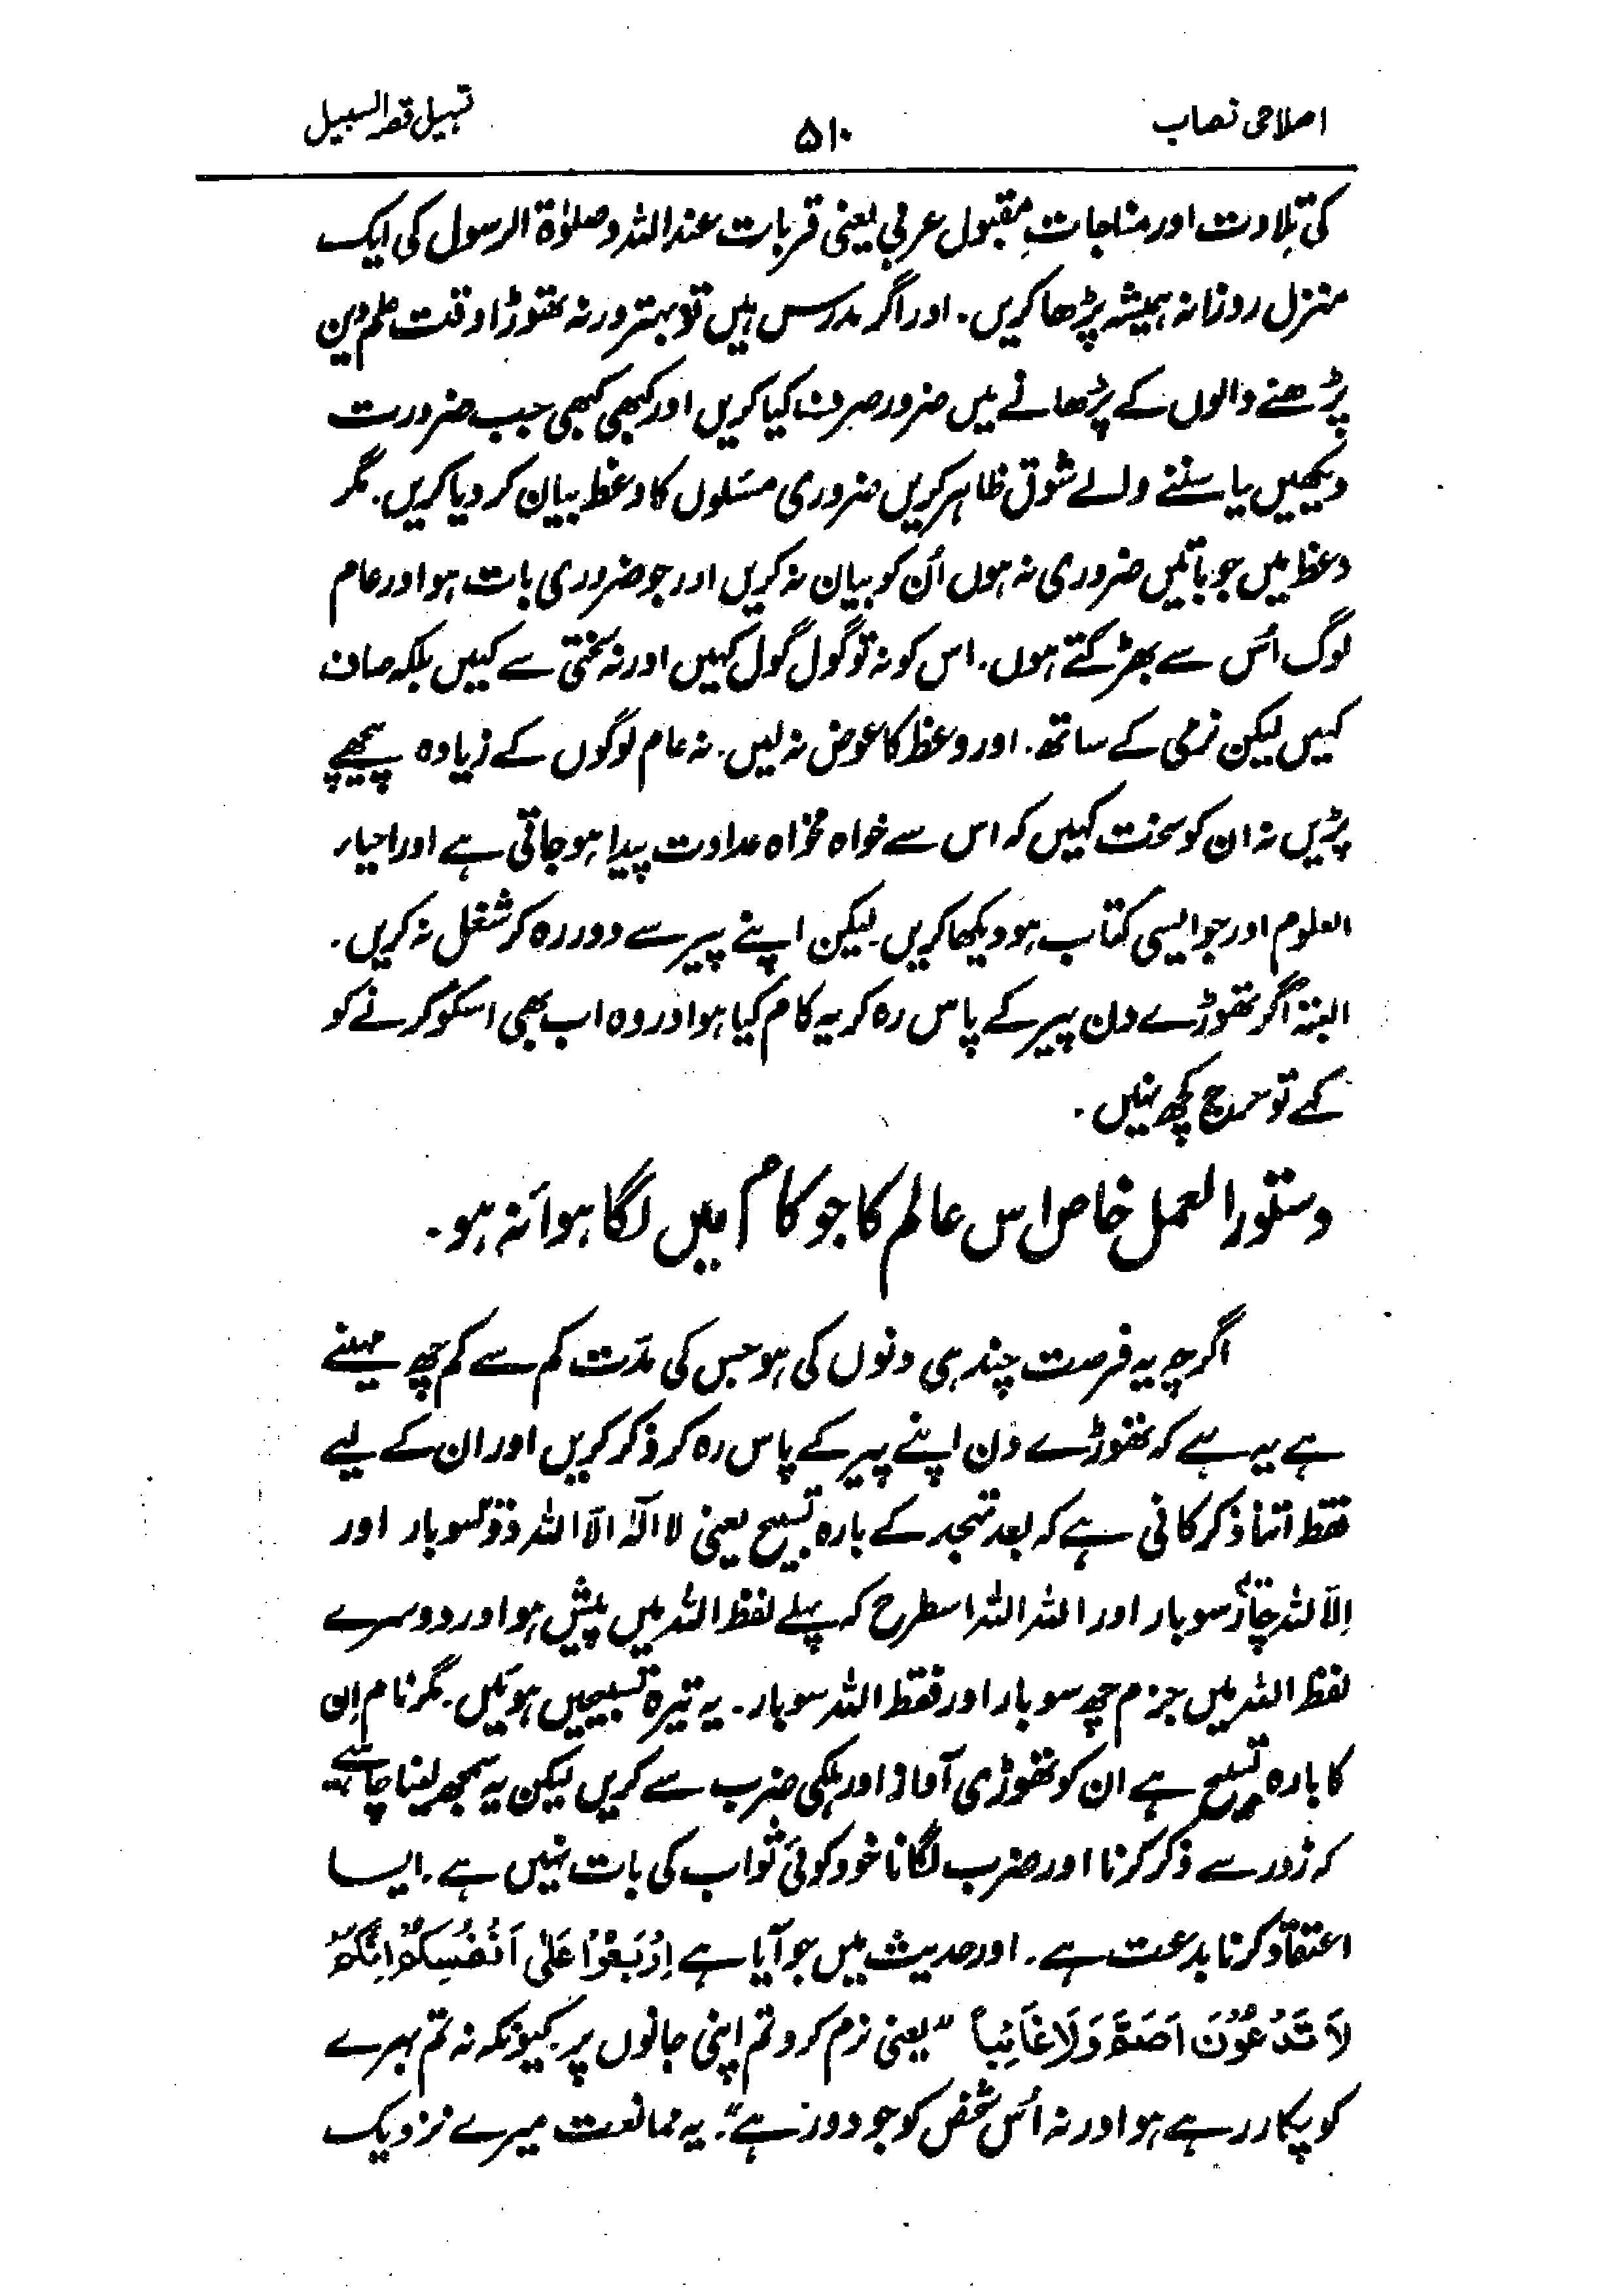 اصلاحی نصاب
۵۱۰
تسہیل قصد السبیل
کی تلاوت اور مناجاتِ مقبول عربی یعنی قربات عند اللہ وصلوٰۃ الرسول کی ایک
منزل روزانہ ہمیشہ پڑھا کریں۔ اور اگر مدرس ہیں تو بہتر ورنہ تھوڑا وقت علم دین
پڑھنے والوں کے پڑھانے میں ضرور صرف کیا کریں اور کبھی کبھی جب ضرورت
دیکھیں یا سننے والے شوق ظاہر کریں ضروری مسئلوں کا وعظ بیان کر دیا کریں۔ مگر
وعظ میں جو باتیں ضروری نہ ہوں اُن کو بیان نہ کریں اور جو ضروری بات ہو اور عام
لوگ اُس سے بھڑکتے ہوں۔ اس کو نہ تو گول گول کہیں اور نہ سختی سے کہیں بلکہ صاف
کہیں لیکن نرمی کے ساتھ۔ اور وعظ کا عوض نہ لیں۔ نہ عام لوگوں کے زیادہ پیچھے
پڑیں نہ ان کو سخت کہیں کہ اس سے خواہ مخواہ عداوت پیدا ہو جاتی ہے اور احیاء
العلوم اور جو ایسی کتاب ہو دیکھا کریں۔ لیکن اپنے پیر سے دور رہ کر شغل نہ کریں۔
البتہ اگر تھوڑے دن پیر کے پاس رہ کر یہ کام کیا ہو اور وہ اب بھی اسکو کرنے کو
کہے تو حرج کچھ نہیں۔
دستور العمل خاص اس عالم کا جو کام میں لگا ہوا نہ ہو۔
اگرچہ یہ فرصت چند ہی دنوں کی ہو جس کی مدّت کم سے کم چھ مہینے
ہے یہ ہے کہ تھوڑے دن اپنے پیر کے پاس رہ کر ذکر کریں اور ان کے لیے
فقط اتنا ذکر کافی ہے کہ بعد تہجد کے بارہ تسبیح یعنی لا الٰہ الّا اللہ دوسو بار اور
اِلّا اللہ چار سو بار اور اللہ اللہ اسطرح کہ پہلے لفظ اللہ میں پیش ہو اور دوسرے
لفظ اللہ میں جزم چھ سو بار اور فقط اللہ سو بار۔ یہ تیرہ تسبیحیں ہوئیں۔ مگر نام اِن
کا بارہ تسبیح ہے ان کو تھوڑی آواز اور ہلکی ضرب سے کریں لیکن یہ سمجھ لینا چاہیے
کہ زور سے ذکر کرنا اور ضرب لگانا خود کوئی ثواب کی بات نہیں ہے۔ ایسا
اعتقاد کرنا بدعت ہے۔ اور حدیث میں جو آیا ہے اِرْبَعُوْا عَلٰی اَنْفُسِکُمْ اِنَّکُمْ
لَا تَدْعُوْنَ اَصَمَّ وَلَا غَائِباً ”یعنی نرم کرو تم اپنی جانوں پر۔ کیونکہ نہ تم بہرے
کو پکار رہے ہو اور نہ اُس شخص کو جو دور ہے“۔ یہ ممانعت میرے نزدیک